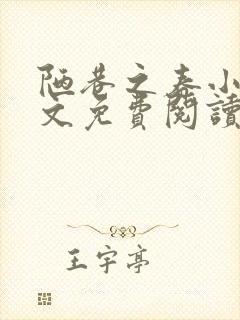 陋巷之春小
文免費閱讀
王宇亭